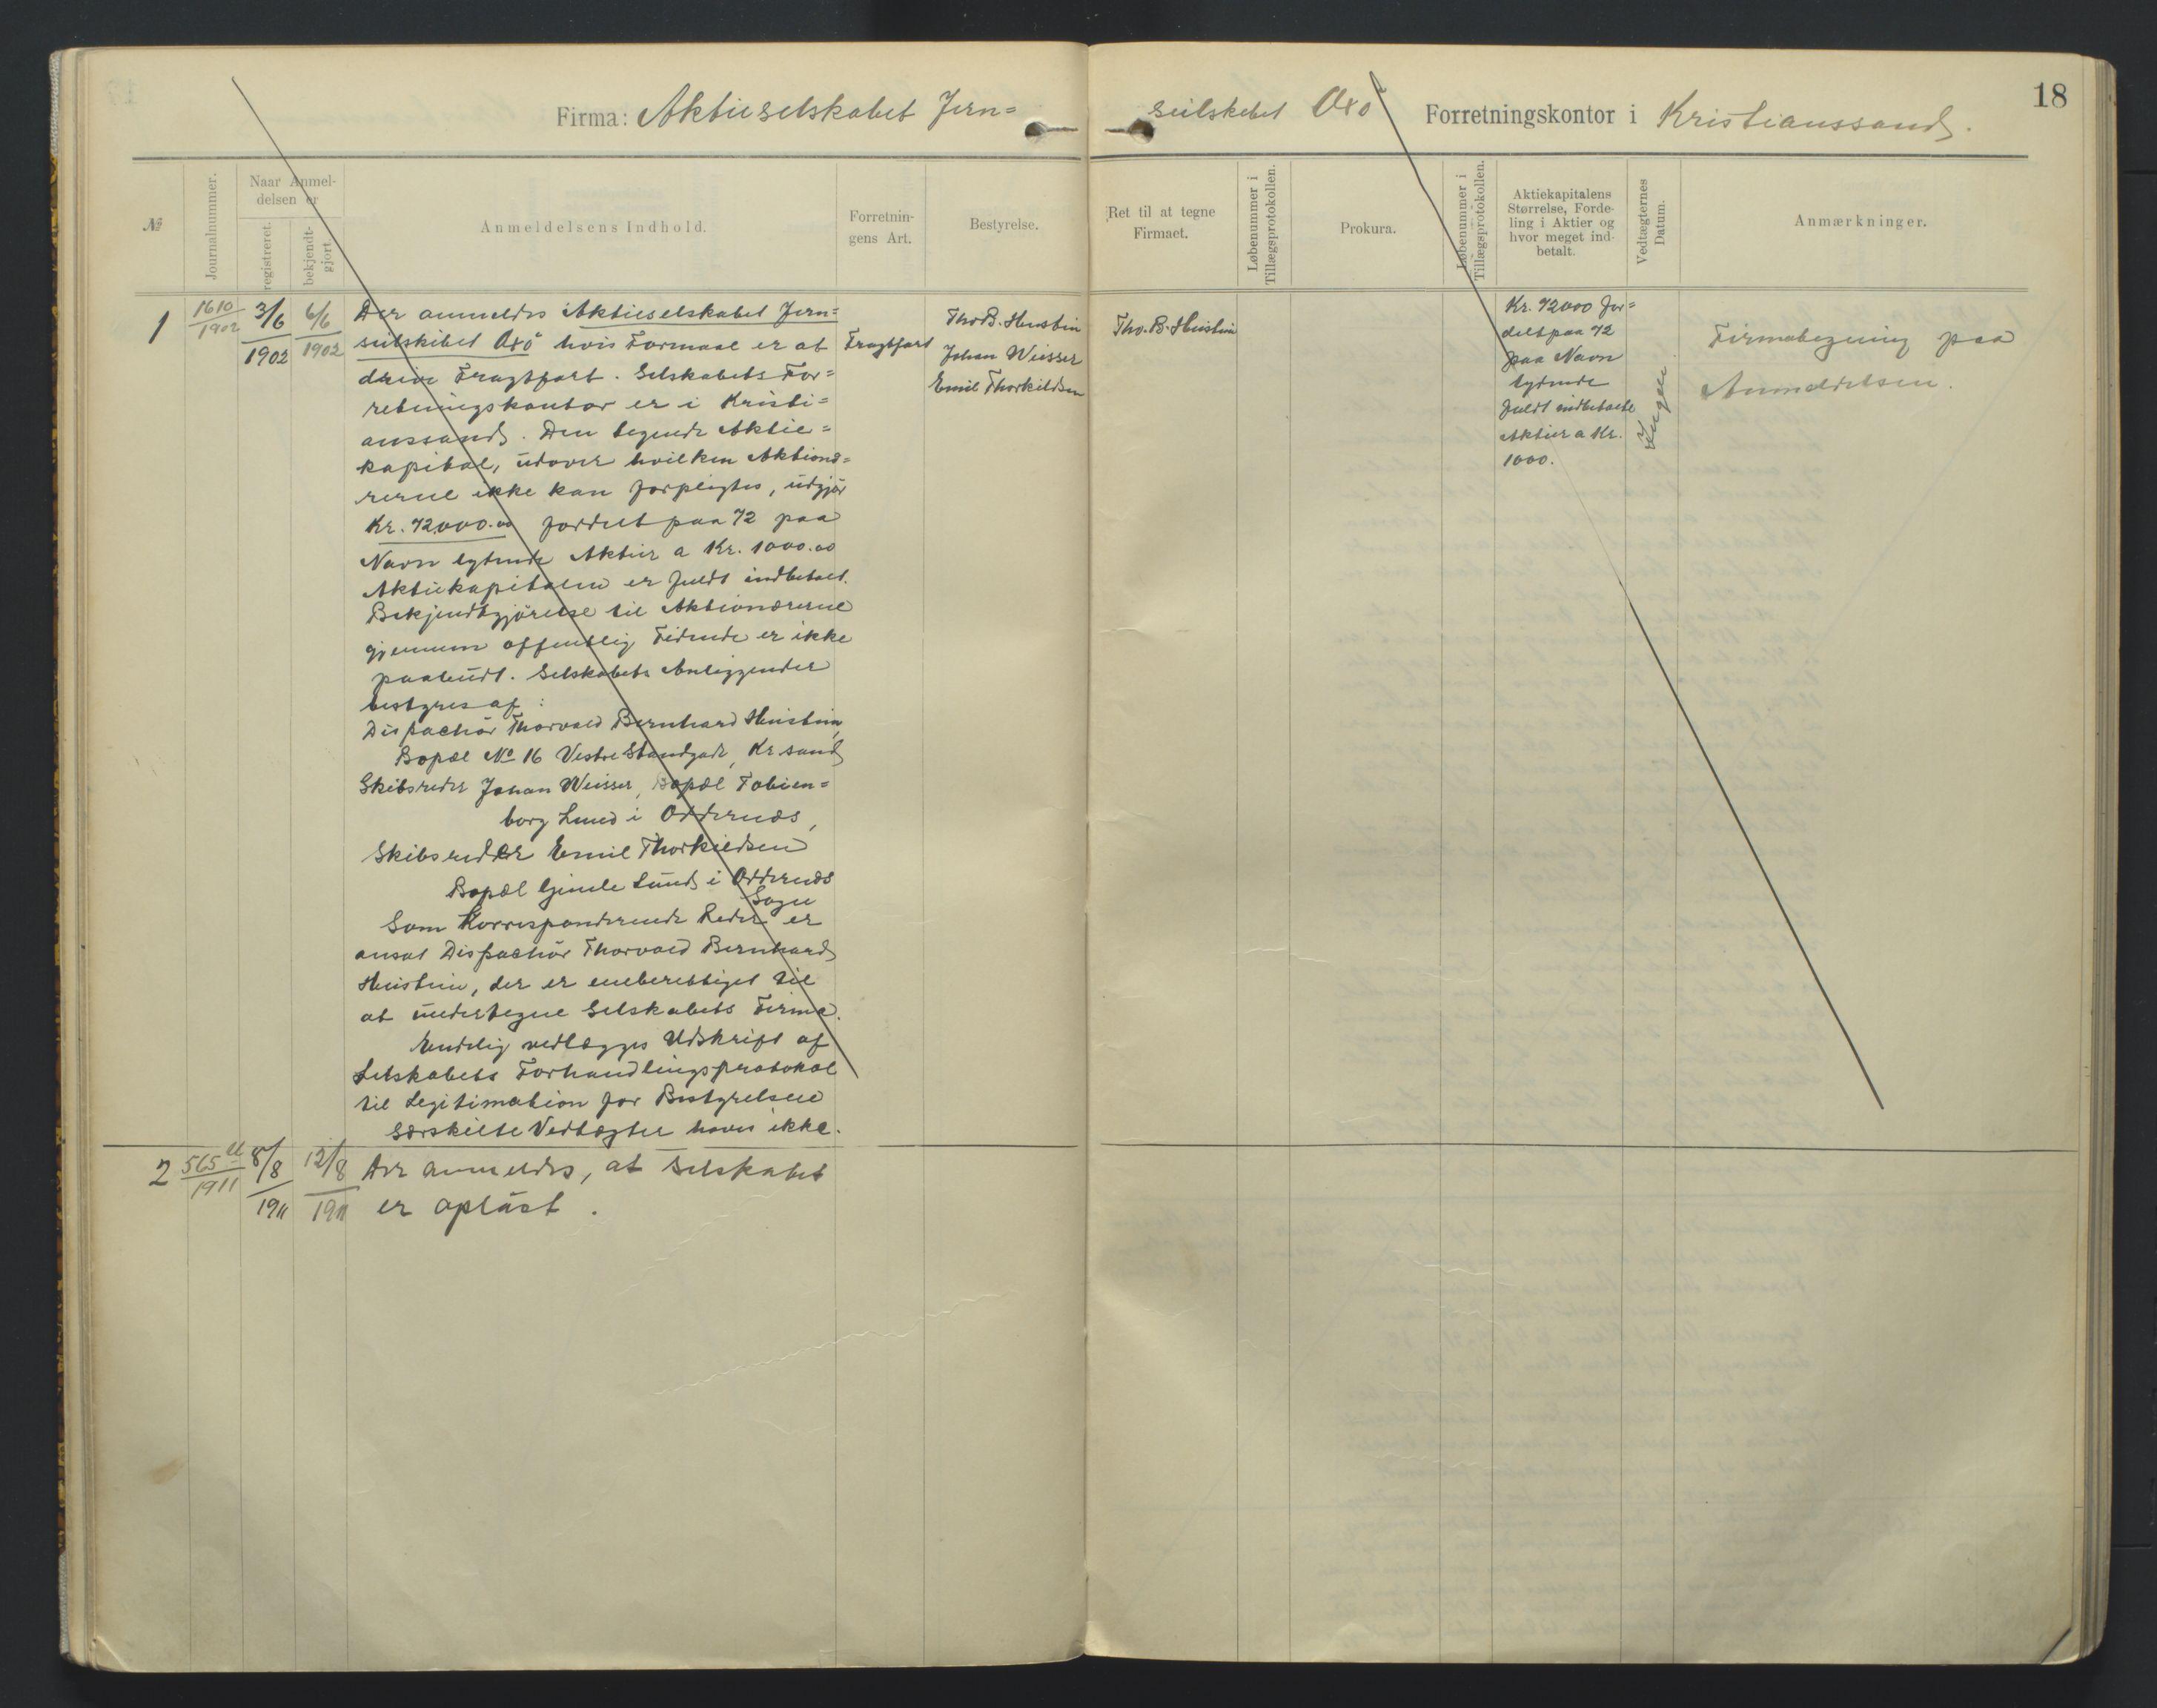 18
Firma: Aktieselskabet Jern=
seilskibet Oxö Forretningskontor i Kristianssand.
№
Journalnummer.
Naar Anmel-
delsen er
registreret.
bekjendt-
gjort.
Anmeldelsens Indhold.
Forretnin-
gens Art.
Bestyrelse.
Ret til at tegne
Firmaet.
Løbenummer i
Tillægsprotokollen.
Prokura.
Løbenummer i
Tillægsprotokollen.
Aktiekapitalens
Størrelse, Forde-
ling i Aktier og
hvor meget ind-
betalt.
Vedtægternes
Datum.
Anmærkninger.
1
1610
1902
3/6
1902
6/6
1902
Der anmeldes Aktieselskabet Jern=
seilskibet Oxö hvis Formaal er at
drive Fragtfart. Selskabets For=
retningskontor er i Kristi=
anssand. Den tegnede Aktie=
kapital, udover hvilken Aktionæ=
rerne ikke kan forpligtes, udgjör
Kr. 72000.00 fordelt paa 72 paa
Navn lydende Aktier a Kr. 1000.00
Aktiekapitalen er fuldt indbetalt.
Bekjendtgjörelse til Aktionærerne
gjennem offentlig Tidende er ikke
paabudt. Selskabets Anliggender
bestyres af:
Dispachör Thorvald Bernhard Heistein,
Bopæl No 16 Vestre Strandgade, Kr sand
Skibsreder Johan Weisser, Bopæl Tobien=
borg Lund i Oddernæs,
Skibsreder Emil Thorkildsen
Bopæl Gimle Lund i Oddernæs
Sogn
Som Korresponderende Reder er
ansat Dispachör Thorvald Bernhard
Heistein, der er eneberettiget til
at undertegne Selskabets Firma.
Endelig vedlægges Udskrift af
Selskabets Forhandlingsprotokol
til Legitimation for Bestyrelsen
Særskilte Vedtægter haves ikke.
Fragtfart
Tho. B. Heistein
Johan Weisser
Emil Thorkildsen
Tho. B. Heistein
Kr. 72000 for=
delt paa 72
paa Navn
lydende
fuldt indbetalte
Aktier a Kr.
1000.
Ingen
Firmategning paa
Anmeldelsen.
2
565
1911
8/8
1911
12/8
1911
Der anmeldes, at Selskabet
er oplöst.